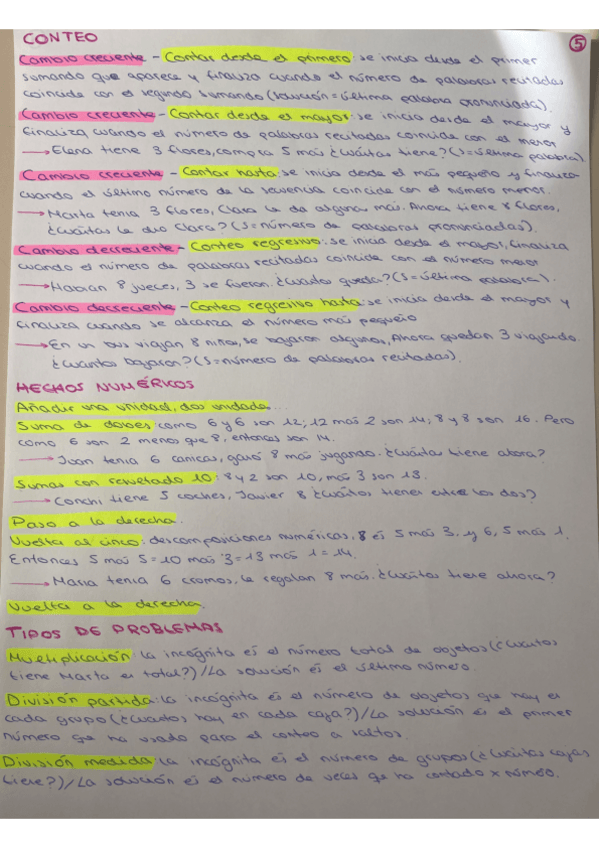 CONTEO
5
Cambio creciente - Contar desde el primero: se inicia desde el primer
sumando que aparece y finaliza cuando el número de palabras recitadas
coincide con el segundo sumando (solución = última palabra pronunciada).
Cambio creciente - Contar desde el mayor: se inicia desde el mayor y
finaliza, cuando el número de palabras recitadas coincide con el menor
→ Elena tiene 3 flores, compra 5 más ¿Cuántas tiene? (S = última palabra)
Cambio creciente - Contar hasta: se inicia desde el más pequeño y finaliza
cuando el último número de la secuencia coincide con el número menor.
→ Marta tenia 3 flores, Clara le da algunas más. Ahora tiene 8 flores,
¿Cuántas le dio Clara? (S = número de palabras pronunciadas).
Cambio decreciente - Conteo regresivo: se inicia desde el mayor, finaliza
cuando el número de palabras recitadas coincide con el número menor
→ Habían 8 jueces, 3 se fueron. ¿Cuántos queda? (S = última palabra).
Cambio decreciente - Conteo regresivo hasta: se inicia desde el mayor y
finaliza cuando se alcanza el número más pequeño
→ En un bus viajan 8 niños, se bajaron algunos, Ahora quedan 3 viajando.
¿Cuántos bajaron? (S = número de palabras recitadas).
HECHOS NUMÉRICOS
Añadir una unidad, dos unidades...
Suma de dobles: como 6 y 6 son 12; 12 más 2 son 14; 8 y 8 son 16. Pero
como 6 son 2 menos que 8, entonces son 14.
→ Juan tenia 6 canicas, ganó 8 más jugando. ¿Cuántas tiene ahora?
Sumas con resultado 10: 8 y 2 son 10, más 3 son 13.
→ Conchi tiene 5 coches, Javier 8 ¿Cuántos tienen entre los dos?
Paso a la derecha.
Vuelta al cinco: descomposiciones numéricas, 8 es 5 más 3. y 6, 5 más 1.
Entonces 5 más 5 = 10 más 3 = 13 más 1 = 14.
→ Maria tenia 6 cromos, le regalan 8 más. ¿Cuántas tiene ahora?
Vuelta a la derecha.
TIPOS DE PROBLEMAS
Multiplicación: la incógnita es el número total de objetos (¿Cuántos
tiene Marta en total?) / La solución es el último número.
División partida: la incógnita es el número de objetos que hay en
cada grupo (¿Cuántos hay en cada caja?) / La solución es el primer
número que ha usado para el conteo a saltos.
División medida: la incógnita es el número de grupos (¿Cuántas cajas
tiene?) / La solución es el número de veces que ha contado x número.